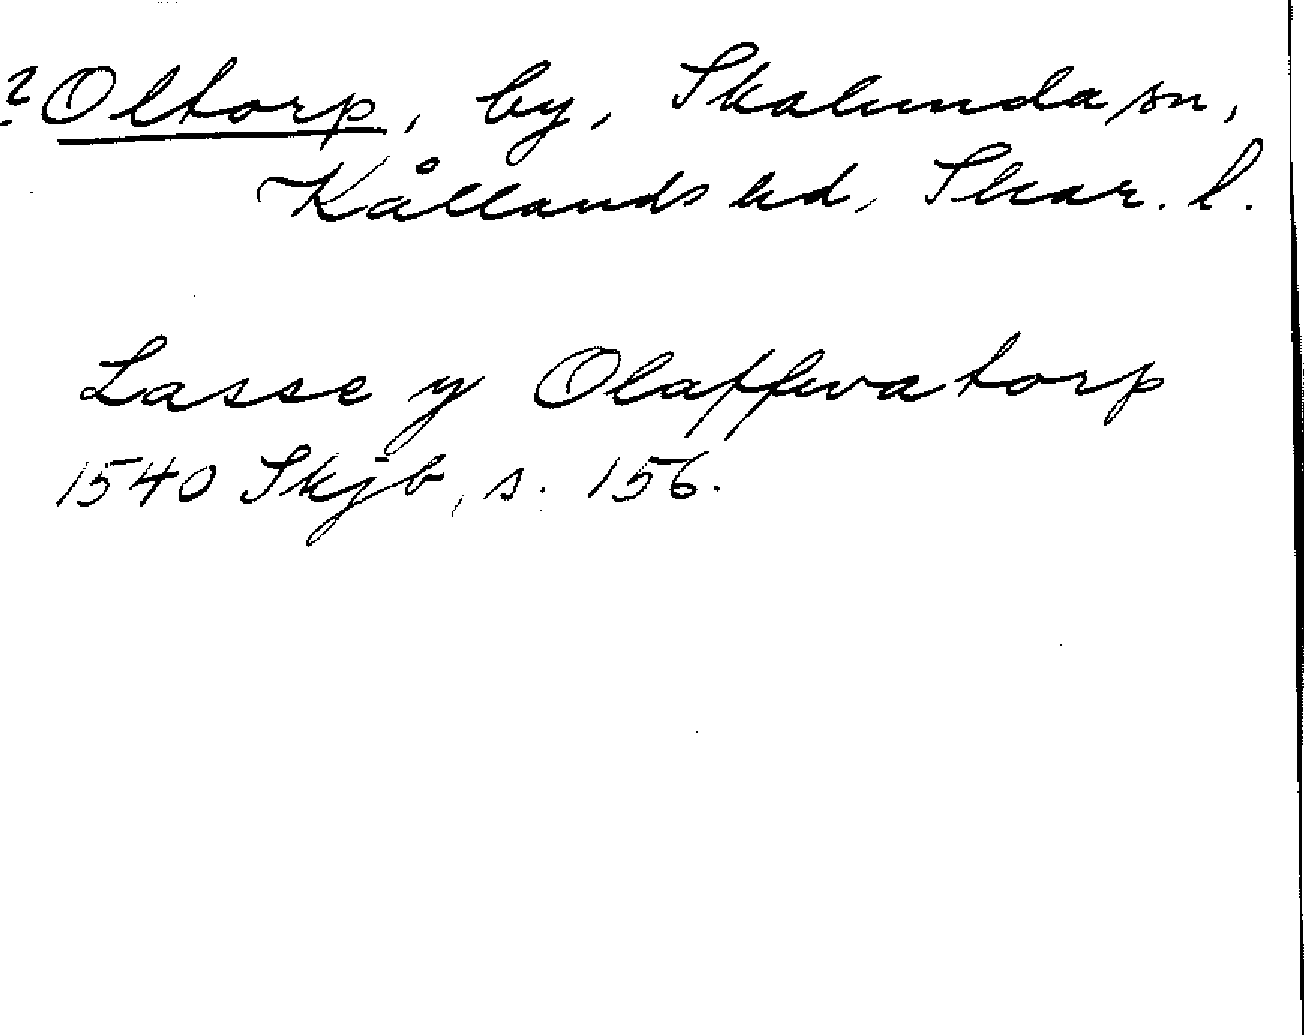 ? Oltorp, by, Skalunda sn,
Kållands hd, Skar. l.
Lasse y Olaffwatorp
1540 Skjb, s. 156.